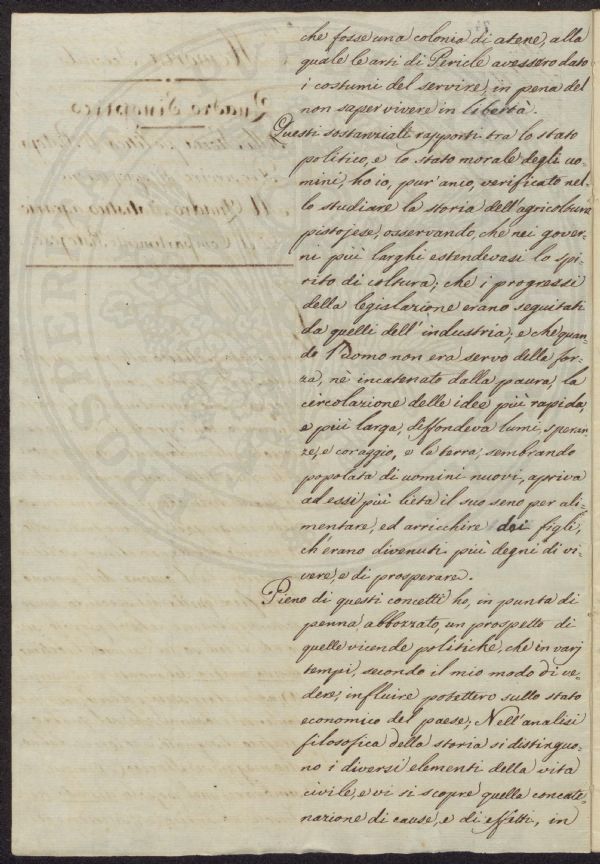 che fosse una colonia di atene, alla
quale le arti di Pericle avessero dato
i costumi del servire, in pena del
non saper vivere in libertà.
Questi sostanziali rapporti tra lo stato
politico, e lo stato morale degli uo-
mini, ho io, pur'anco, verificato nel-
lo studiare la storia dell'agricoltura
pistojese, osservando, che nei gover-
ni più larghi estendevasi lo spi-
rito di coltura; che i progressi
della legislazione erano seguitati
da quelli dell'industria; e che quan-
do l'Uomo non era servo della for-
za, nè incatenato dalla paura, la
circolazione delle idee più rapida,
e più larga, diffondeva lumi, speran-
ze, e coraggio, e la terra, sembrando
popolata di uomini nuovi, apriva
ad essi più lieta il suo seno per ali-
mentare, ed arricchire dei figli,
ch'erano divenuti più degni di vi-
vere, e di prosperare.
Pieno di questi concetti ho, in punta di
penna, abbozzato, un prospetto di
quelle vicende politiche, che in varj
tempi, secondo il mio modo di ve-
dere, influire potettero sullo stato
economico del paese; Nell'analisi
filosofica della storia si distinguo-
no i diversi elementi della vita
civile, e vi si scopre quella concate-
nazione di cause, e di effetti, in